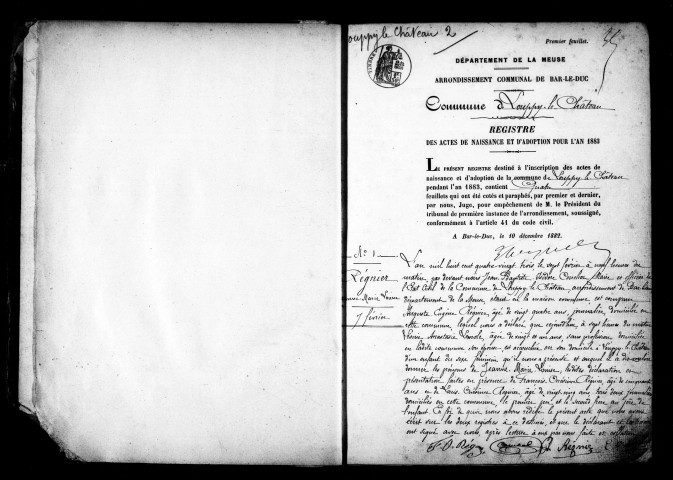 Louppy le Château 2
Premier feuillet.
DÉPARTEMENT DE LA MEUSE
ARRONDISSEMENT COMMUNAL DE BAR-LE-DUC
Commune de Louppy-le-Château
REGISTRE
DES ACTES DE NAISSANCE ET D'ADOPTION POUR L'AN 1883
LE PRÉSENT REGISTRE destiné à l'inscription des actes de
naissance et d'adoption de la commune de Louppy le Château
pendant l'an 1883, contient quatre
feuillets qui ont été cotés et paraphés, par premier et dernier,
par nous, Juge, pour empêchement de M. le Président du
tribunal de première instance de l'arrondissement, soussigné,
conformément à l'article 41 du code civil.
A Bar-le-Duc, le 10 décembre 1882.
N° 1
Régnier
Marie Louise
7 février
L'an mil huit cent quatre-vingt trois le sept février à neuf heures du
matin par devant nous Jean Baptiste Isidore Maire et officier de
l'État Civil de la Commune de Louppy le Château, arrondissement de Bar-le-Duc
département de la Meuse, étant en la maison commune est comparu
Auguste Eugène Régnier, âgé de vingt quatre ans, journalier, domicilié en
cette commune, lequel nous a déclaré que cejourd'hui, à sept heures du matin
Anastasie, âgée de vingt et un ans, sans profession domiciliée
en ladite commune son épouse est accouchée en son domicile à Louppy le Château
d'un enfant du sexe féminin qu'il nous a présenté et auquel il a déclaré
donner les prénoms de Jeanne Marie Louise, lesdites déclaration et
présentation faites en présence de François Régnier âgé de cinquante
ans et de Louis Régnier âgé de vingt cinq ans tous deux journaliers
domiciliés en cette commune, le premier et le second de
l'enfant. En foi de quoi nous avons rédigé le présent acte que nous avons
écrit sur les deux registres à ce destinés, et que le déclarant et les témoins
ont signé avec nous, après lecture à eux par nous faite
Régnier